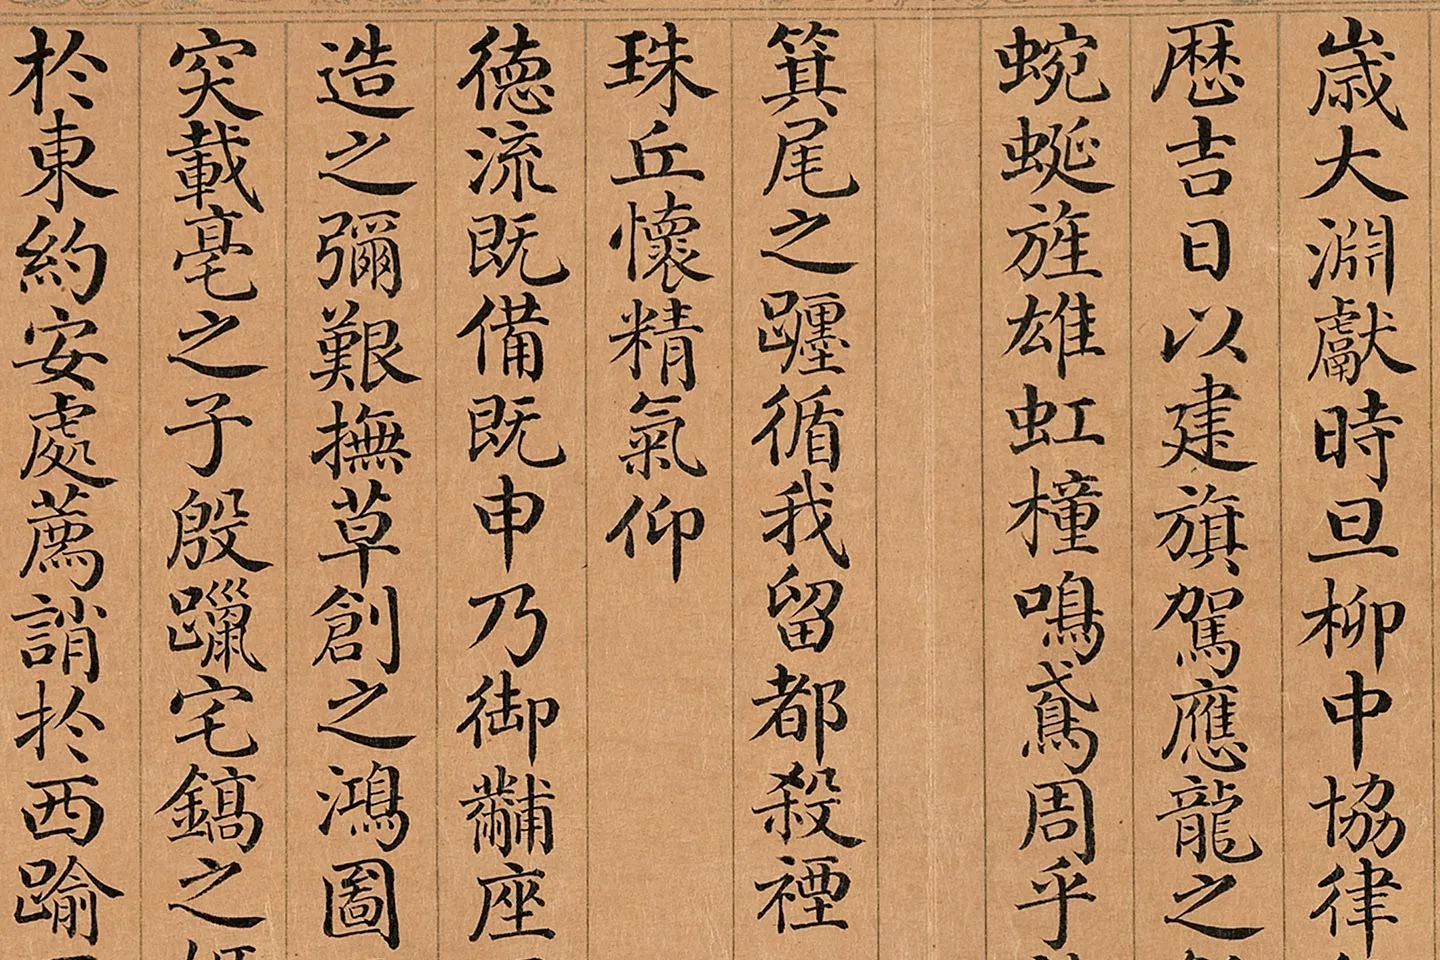 歳大淵獻時旦柳中協律
歴吉日以建旗駕應龍之
蜿蜒旌雄虹橦鳴鳶周乎
箕尾之躔循我留都殺禋
珠丘懷精氣仰
德流既備既申乃御黼座
造之彌艱撫草創之鴻圖
突載亳之子殷躐宅鎬之
於東約安處薦誚於西踰